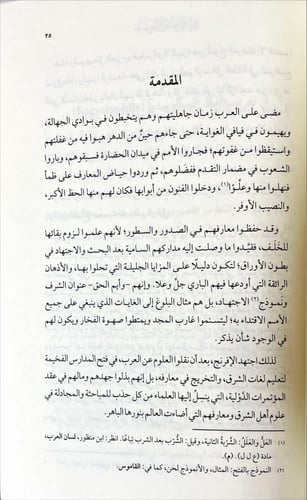 ٢٥
المقدمة
مضى على العرب زمان جاهليتهم وهم يتخبطون في بوادي الجهالة،
ويهيمون في فيافي الغواية، حتى جاءهم حينٌ من الدهر هبوا فيه من غفلتهم
واستيقظوا من غفوتهم؛ فجاروا الأمم في ميدان الحضارة فسبقوهم، وباروا
الشعوب في مضمار التقدم ففضلوهم، ثم وردوا حياض المعارف على ظمأ
فنهلوا منها وعلُّوا(١)، ودخلوا الفنون من أبوابها فكان لهم منها الحظ الأكبر،
والنصيب الأوفر.
وقد حفظوا معارفهم في الصدور والسطور؛ لأنهم علموا لزوم بقائها
للخَلَف، فقيَّدوا ما وصلت إليه مداركهم السامية بعد البحث والاجتهاد في
بطون الأوراق؛ لتكون دليلًا على المزايا الجليلة التي تحلوا بها، والأذهان
الرائقة التي أودعها فيهم الباري جلَّ وعلا. وإنهم -وأيم الحق- عنوان الشرف
ونموذج(٢) الاجتهاد، بل هم مثال البلوغ إلى الغايات الذي ينبغي على جميع
الأمم الاقتداء به؛ ليتسنموا غارب المجد ويمتطوا صهوة الفخار ويكون لهم
في الوجود شأن يذكر.
لذلك اجتهد الإفرنج، بعد أن نقلوا العلوم عن العرب، في فتح المدارس الفخيمة
لتعليم لغات الشرق، والتخريج في معارفه، بل إنهم بذلوا جهدهم ومالهم في عقد
المؤتمرات الدُّوَلية، التي ينسِل إليها العلماء من كل حدب للمباحثة والمجادلة في
علوم أهل الشرق ومعارفهم التي أضاءت العالم بنورها الباهر.
(١) العَلُّ والعَلَلُ: الشَّرْبةُ الثانية، وقيل: الشُّرْب بعد الشرب تِباعًا. انظر: ابن منظور، لسان العرب،
مادة (ع ل ل). (م).
(٢) النموذج بالفتح: المثال، والأنموذج لحن، كما في: القاموس.